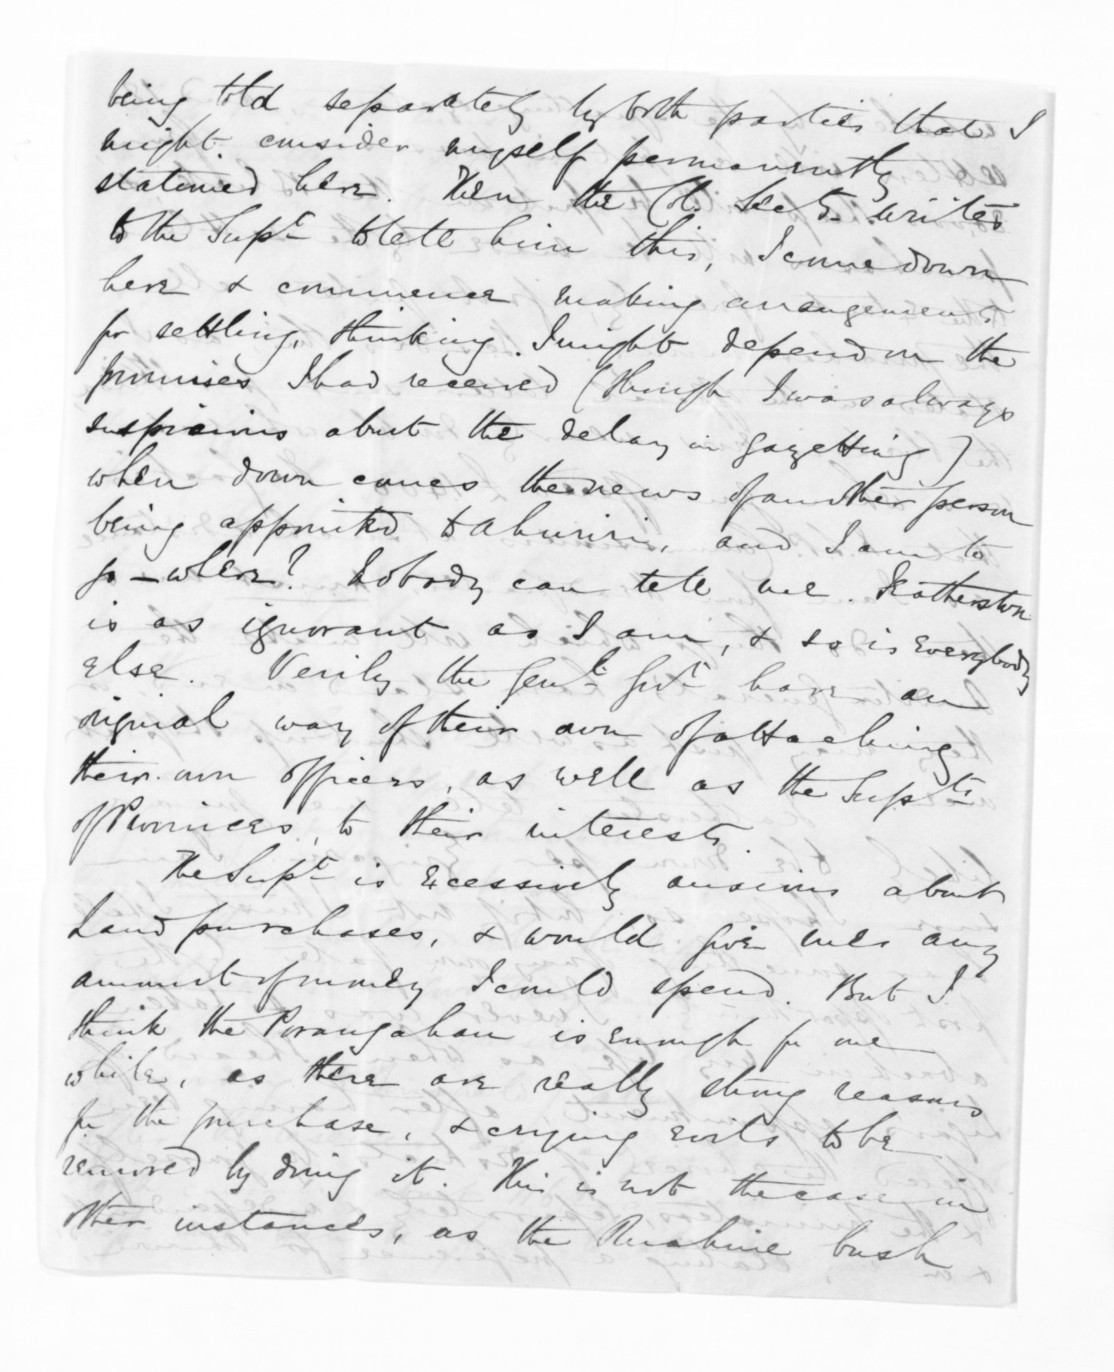 being told separately by both parties that I
might consider myself permanently
stationed here. Then the Col. Secty. writes
to the Supt. to tell him this, I come down
here & commence making arrangements
for settling, thinking I might depend on the
promises I had received (though I was always
suspicious about the delay in gazetting)
when down comes the news of another person
being appointed to Ahuriri, and I am to
go – where? Nobody can tell me. Featherston
is as ignorant as I am, & so is everybody
else. Verily the Genl. Govt. have an
original way of their own of attaching
their own officers, as well as the Supts.
of Provinces, to their interests.
The Supt. is excessively anxious about
Land purchases, & would give me any
amount of money I could spend. But I
think the Porangahau is enough for one
while, as there are really strong reasons
for the purchase, & crying evils to be
removed by doing it. This is not the case in
other instances, as the Ruahine bush